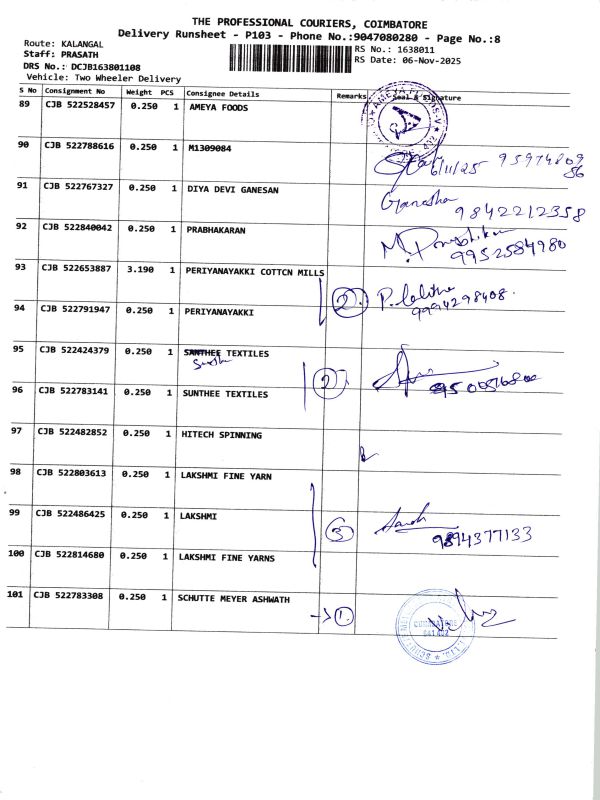 THE PROFESSIONAL COURIERS, COIMBATORE
Delivery Runsheet - P103 - Phone No.:9047080280 - Page No.:8
Route: KALANGAL
RS No.: 1638011
Staff: PRASATH
RS Date: 06-Nov-2025
DRS No.: DCJB163801108
Vehicle: Two Wheeler Delivery
S No Consignment No Weight PCS Consignee Details Remarks Seal & Signature
89 CJB 522528457 0.250 1 AMEYA FOODS
90 CJB 522788616 0.250 1 M1309084
6/11/25 9597480986
91 CJB 522767327 0.250 1 DIYA DEVI GANESAN
Ganesha
9842212358
92 CJB 522840042 0.250 1 PRABHAKARAN
9952584980
93 CJB 522653887 3.190 1 PERIYANAYAKKI COTTCN MILLS
2 P. Lalitha
9994298408.
94 CJB 522791947 0.250 1 PERIYANAYAKKI
95 CJB 522424379 0.250 1 SANTHEE TEXTILES
96 CJB 522783141 0.250 1 SUNTHEE TEXTILES
2
97 CJB 522482852 0.250 1 HITECH SPINNING
98 CJB 522803613 0.250 1 LAKSHMI FINE YARN
99 CJB 522486425 0.250 1 LAKSHMI
3
9894377133
100 CJB 522814680 0.250 1 LAKSHMI FINE YARNS
101 CJB 522783308 0.250 1 SCHUTTE MEYER ASHWATH
→ 1
COIMBATORE
641 402